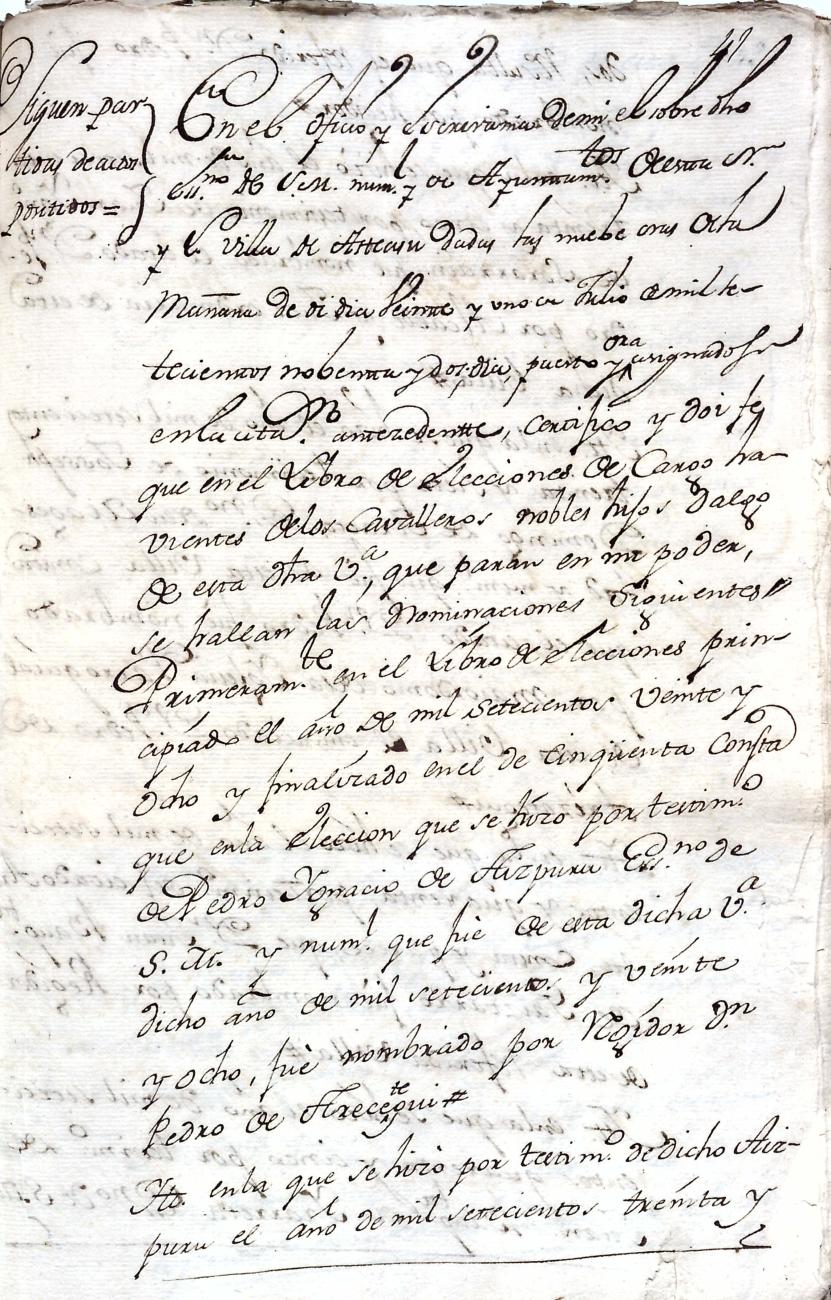 41
Siguen par-
tidas de actos
positibos =
En el Oficio y Escrivania de mi el sobre dho
Ess.no de S.M. num.l y de Ayuntam.tos de esta N.
y L. Villa de Asteasu dadas las nuebe oras de la
Mañana de oi dia Veinte y uno de Julio de mil se-
tecientos nobenta y dos, dia, puesto y ora asignados
en la cita.n antezedentte, Certifico y doi fe,
que en el Libro de Elecciones de Cargo ha-
vientes de los Cavalleros nobles hijos Dalgo
de esta dha V.a, que paran en mi poder,
se hallan las Nominaciones Siguientes //
Primeram.te en el Libro de Elecciones prin-
cipiado el año de mil Setecientos veinte y
ocho y finalizado en el de Cinqüenta Consta
que en la Eleccion que se hizo por testim.o
de Pedro Ygnacio de Aizpuru Ess.no de
S. M. y num.l que fué de esta dicha V.a
dicho año de mil setecientos y veinte
y ocho, fué nombrado por Regidor D.n
Pedro de Arreceygui #
Yt. en la que se hizo por testim.o de dicho Aiz-
puru el año de mil setecientos treinta y